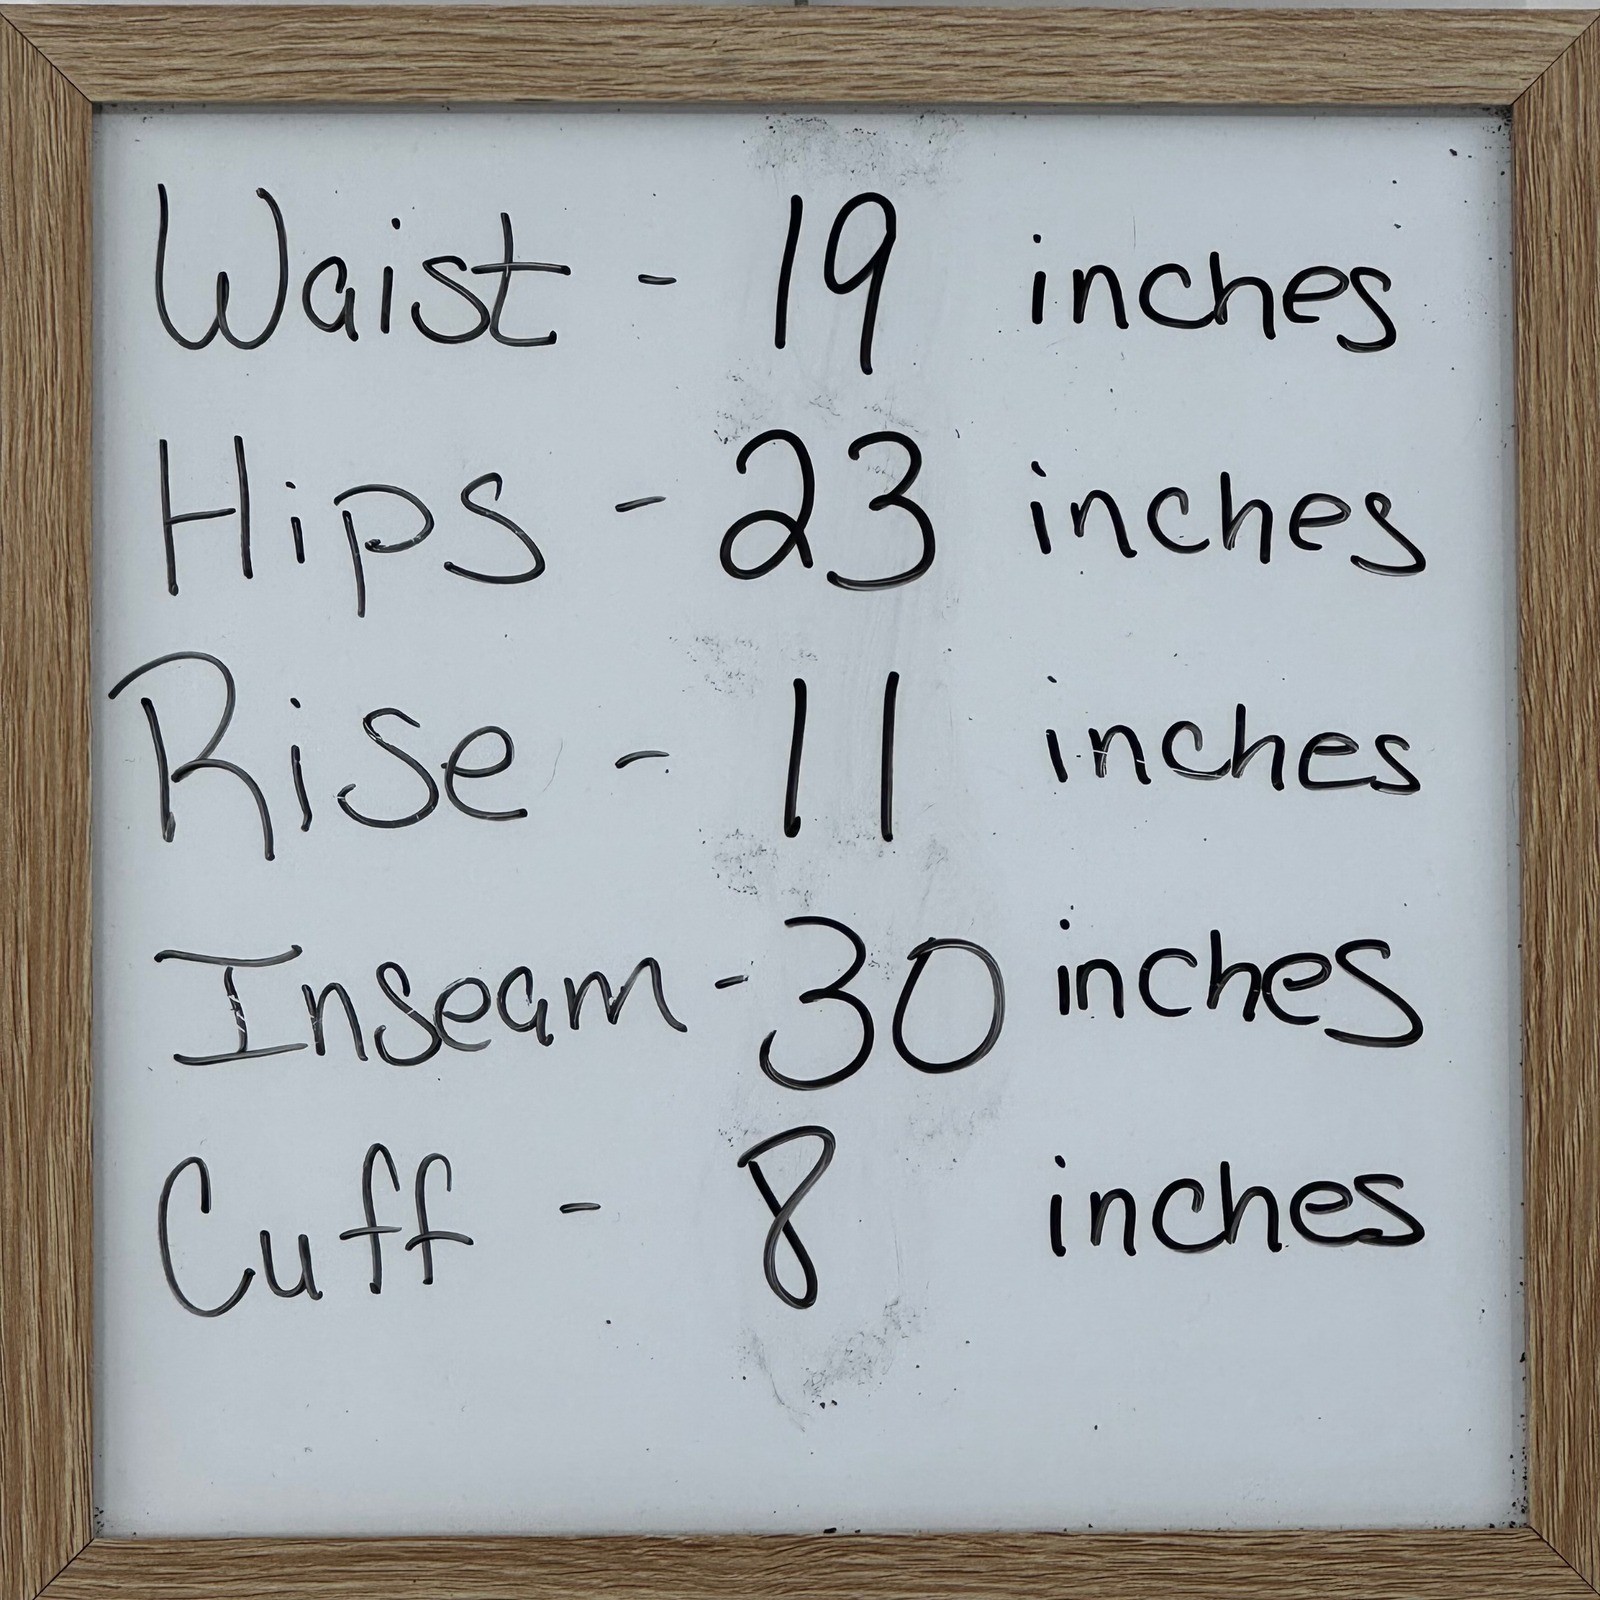 Waist - 19 inches
Hips - 23 inches
Rise - 11 inches
Inseam - 30 inches
Cuff - 8 inches